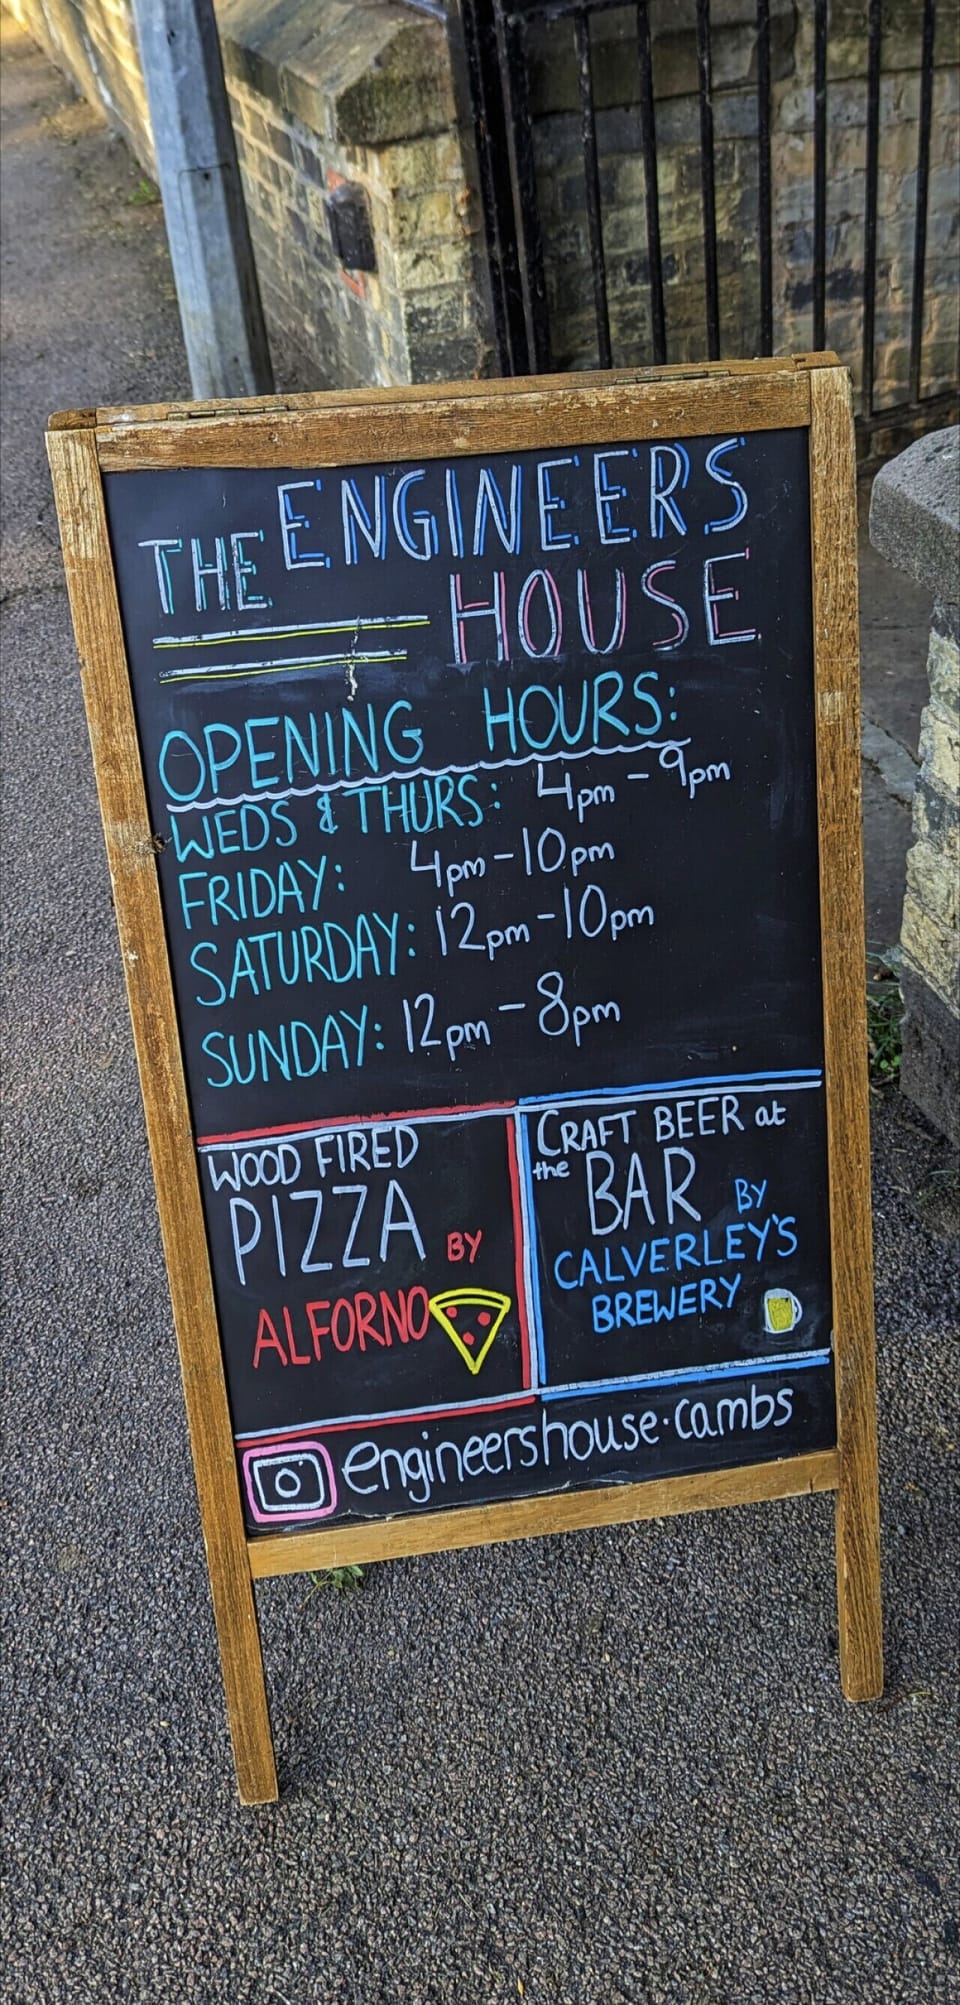 THE ENGINEERS
HOUSE
OPENING HOURS:
WEDS & THURS: 4pm - 9pm
FRIDAY: 4pm - 10pm
SATURDAY: 12pm - 10pm
SUNDAY: 12pm - 8pm
WOOD FIRED
PIZZA BY
ALFORNO
CRAFT BEER at
the BAR BY
CALVERLEY'S
BREWERY
engineershouse.cambs